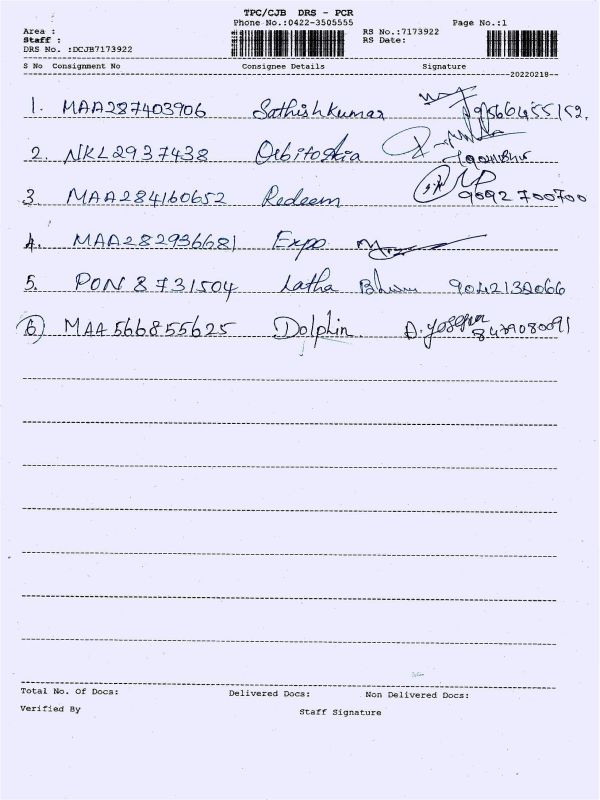 TPC/CJB DRS - PCR
Phone No.:0422-3505555 Page No.:1
Area :
Staff :
RS No.:7173922
RS Date:
DRS No. :DCJB7173922
S No Consignment No Consignee Details Signature
20220218
1. MAA287403906 Sathishkumar 9566455152.
2. NKL2937438
3 MAA284160652 Redeem 9092700700
4. MAA282936681 Expo
5. PON 8731504 Latha 9042132066
6) MAA566855625 Dolphin. 8479080091
Total No. Of Docs: Delivered Docs: Non Delivered Docs:
Verified By Staff Signature